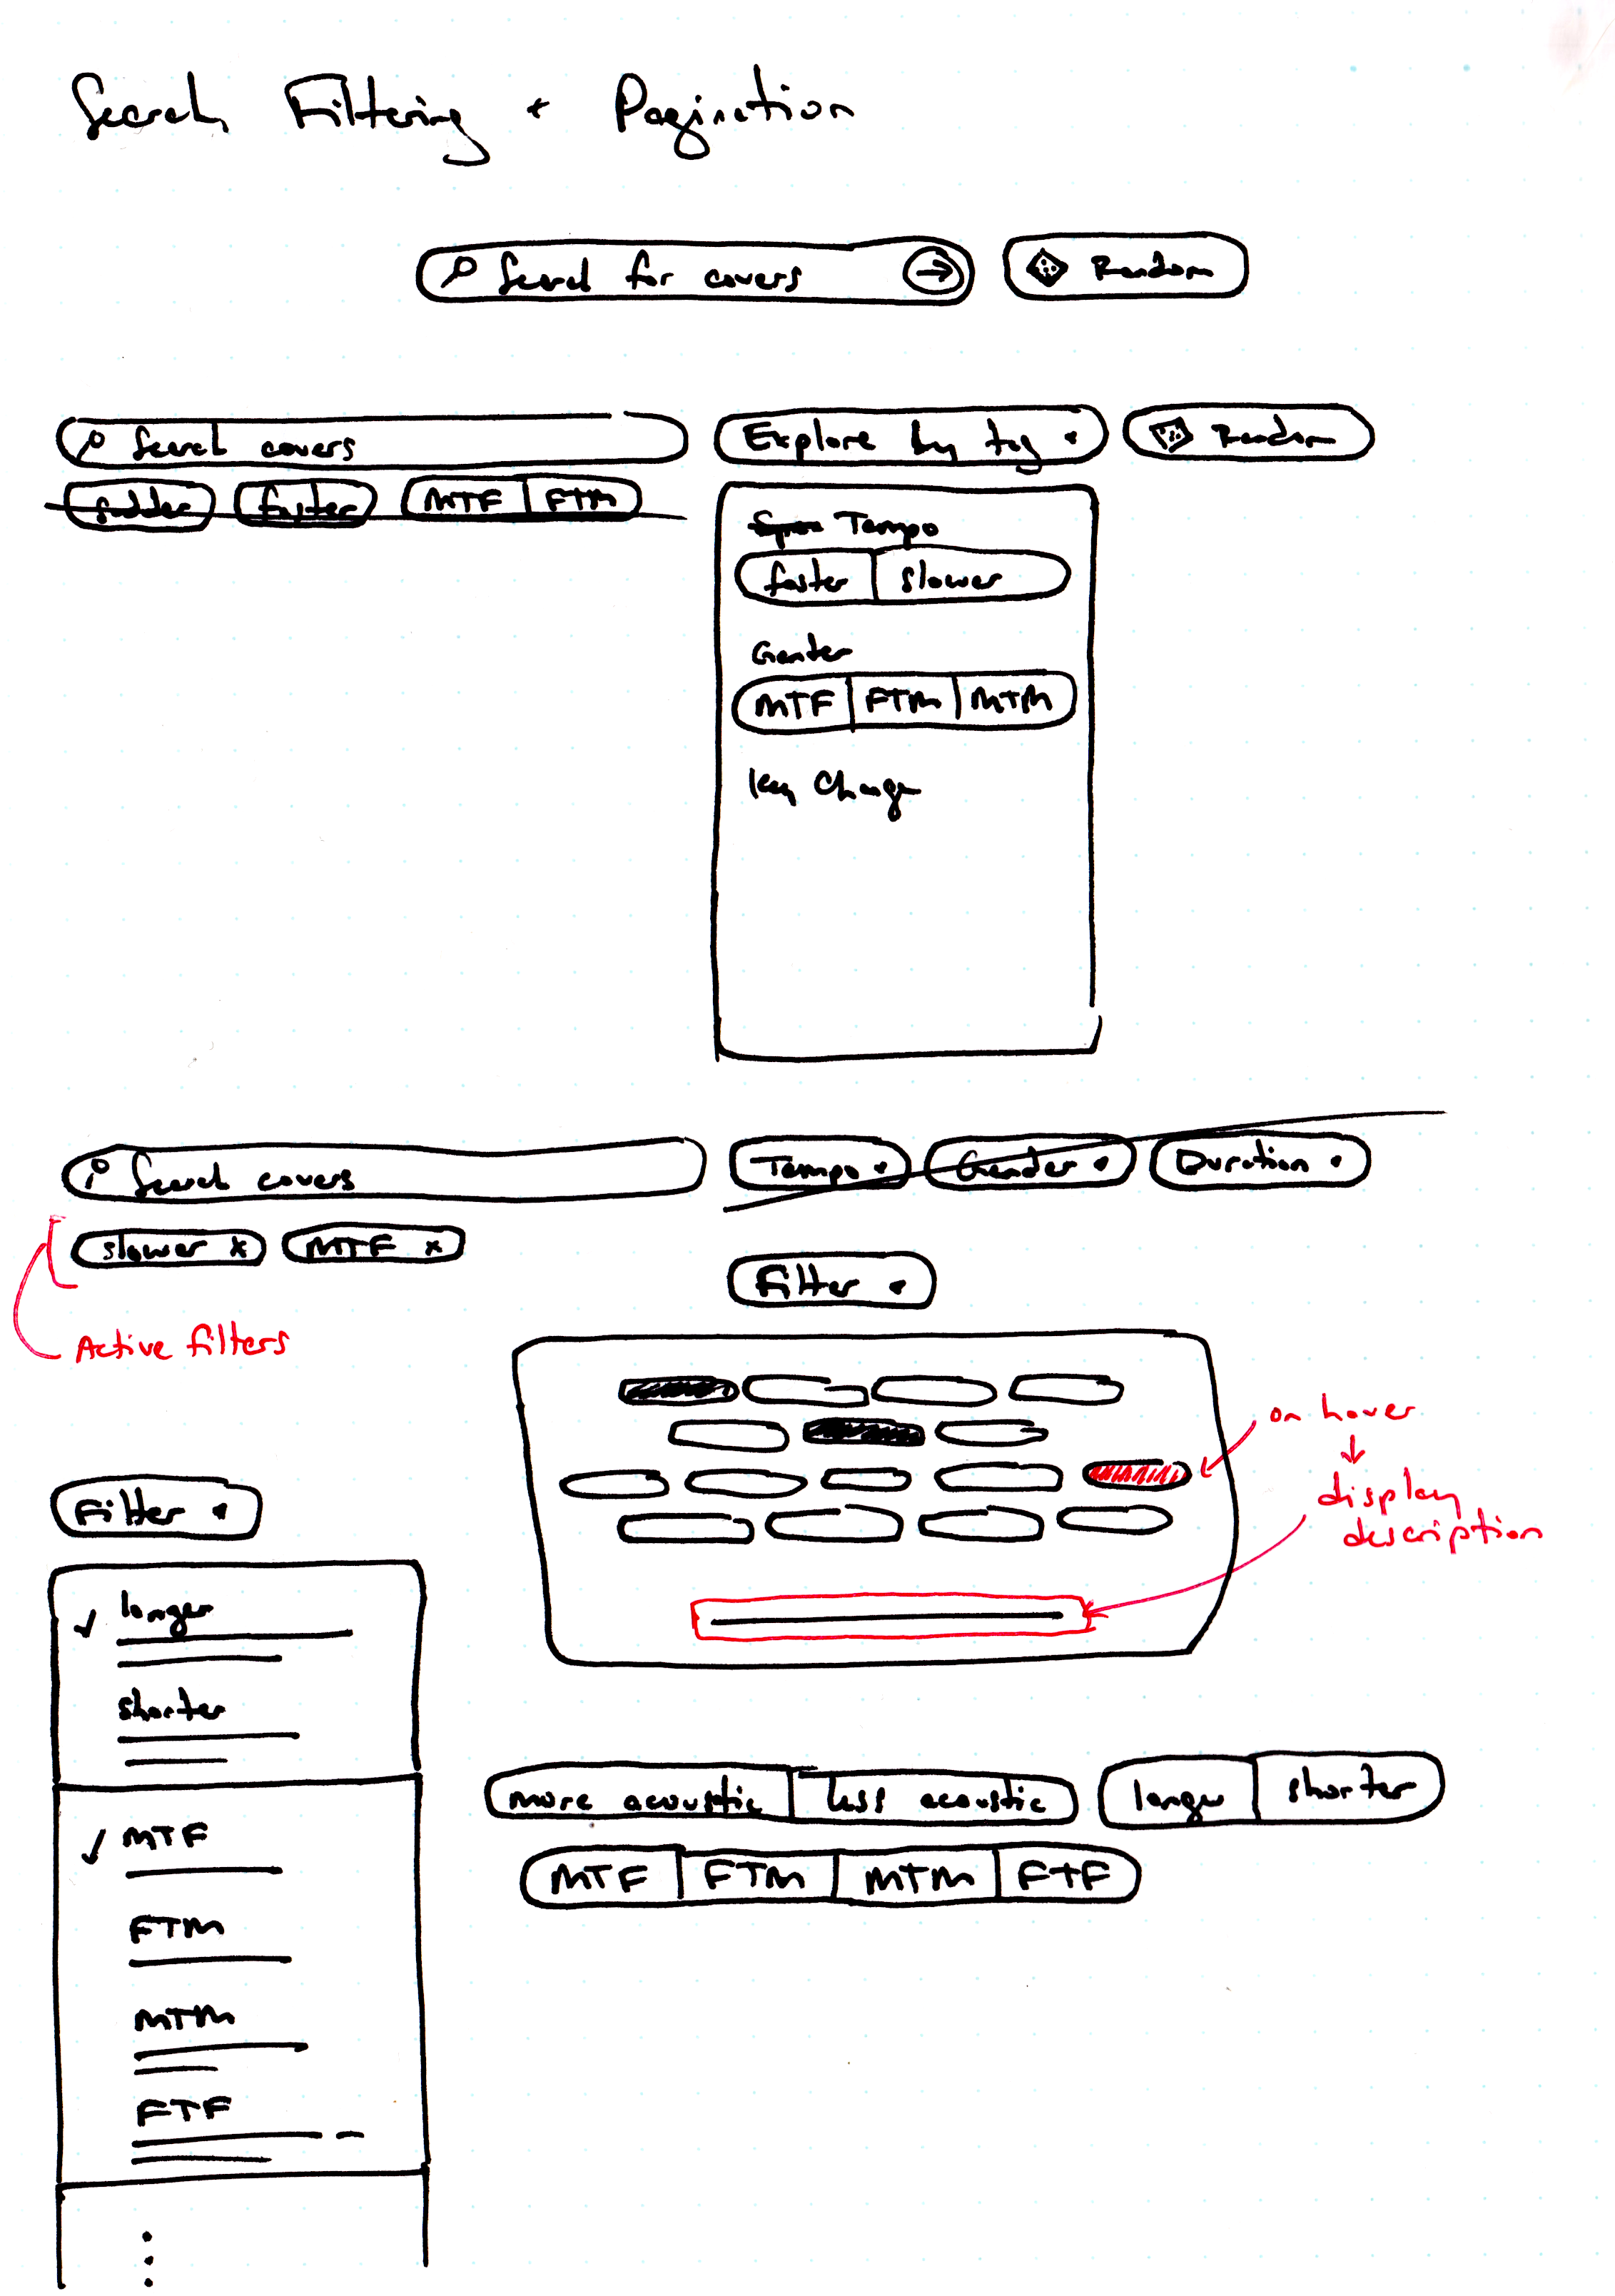 Search, Filtering + Pagination
Search for covers → Random
Search covers Explore by tag Random
sadder faster MTF FTM
Tempo
faster slower
Gender
MTF FTM MTM
Key Change
Search covers Tempo Gender Duration
slower x MTF x
Filter
Active filters
on hover
↓
display
description
Filter
✓ longer
shorter
✓ MTF
FTM
MTM
FTF
more acoustic less acoustic longer shorter
MTF FTM MTM FTF